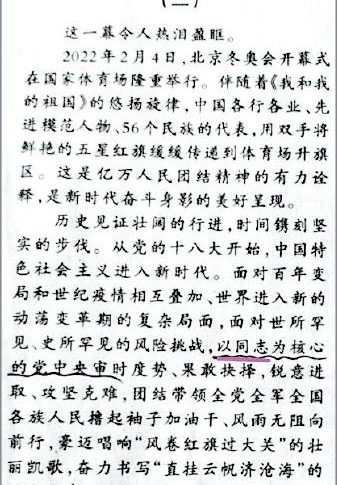 (二)
这一幕令人热泪盈眶。
2022年2月4日,北京冬奥会开幕式
在国家体育场隆重举行。伴随着《我和我
的祖国》的悠扬旋律,中国各行各业、先
进模范人物、56个民族的代表,用双手将
鲜艳的五星红旗缓缓传递到体育场升旗
区。这是亿万人民团结精神的有力诠
释,是新时代奋斗身影的美好呈现。
历史见证壮阔的行进,时间镌刻坚
实的步伐。从党的十八大开始,中国特
色社会主义进入新时代。面对百年变
局和世纪疫情相互叠加、世界进入新的
动荡变革期的复杂局面,面对世所罕
见、史所罕见的风险挑战,以同志为核心
的党中央审时度势、果敢抉择,锐意进
取、攻坚克难,团结带领全党全军全国
各族人民撸起袖子加油干、风雨无阻向
前行,豪迈唱响“风卷红旗过大关”的壮
丽凯歌,奋力书写“直挂云帆济沧海”的